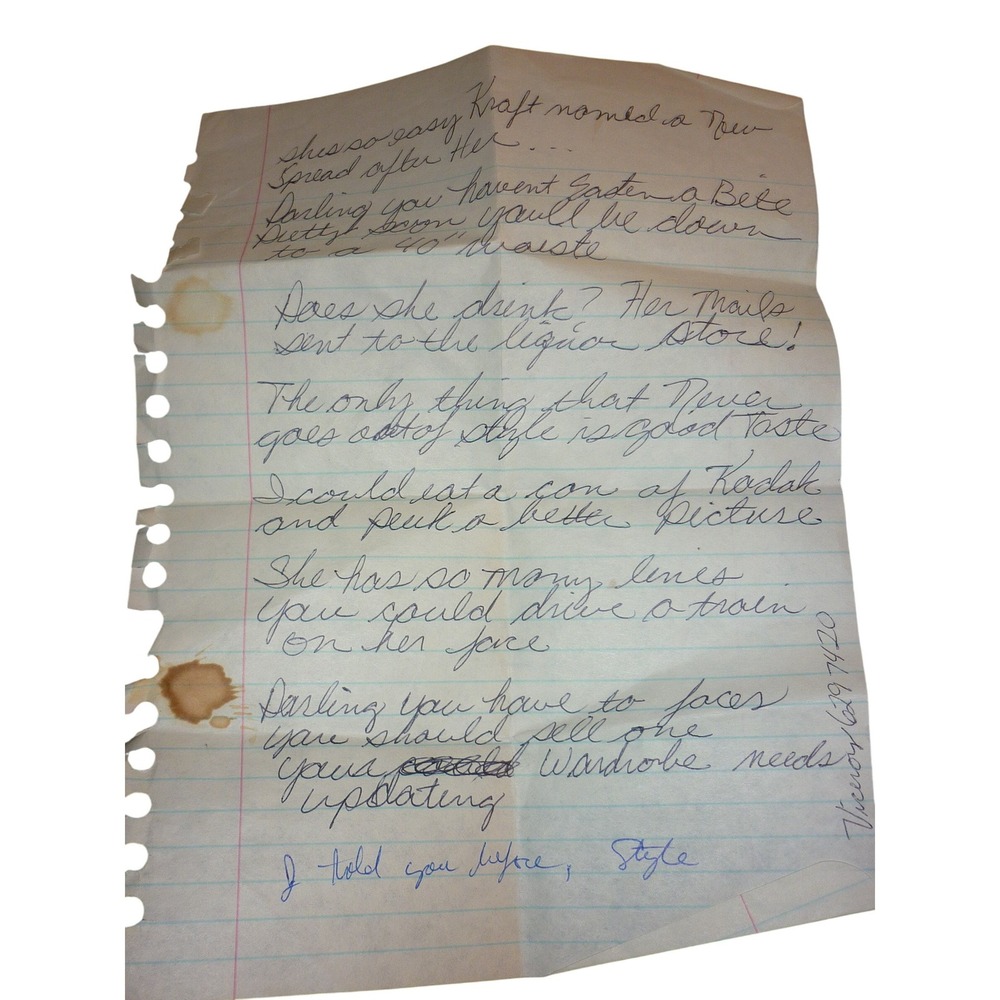 shes so easy Kraft named a New
Spread after Her ...
Darling you havent Eaten a Bite
Pretty soon you'll be down
to a 40" waiste
Does she drink? Her Mails
sent to the liquor store!
The only thing that Never
goes out of style is good Taste
I could eat a can of Kodak
and puuk a better picture
She has so many lines
you could drive a train
on her face
Darling you have to faces
you should sell one
your Wardrobe needs
updating
I told you before, Style
Viceroy 6297420